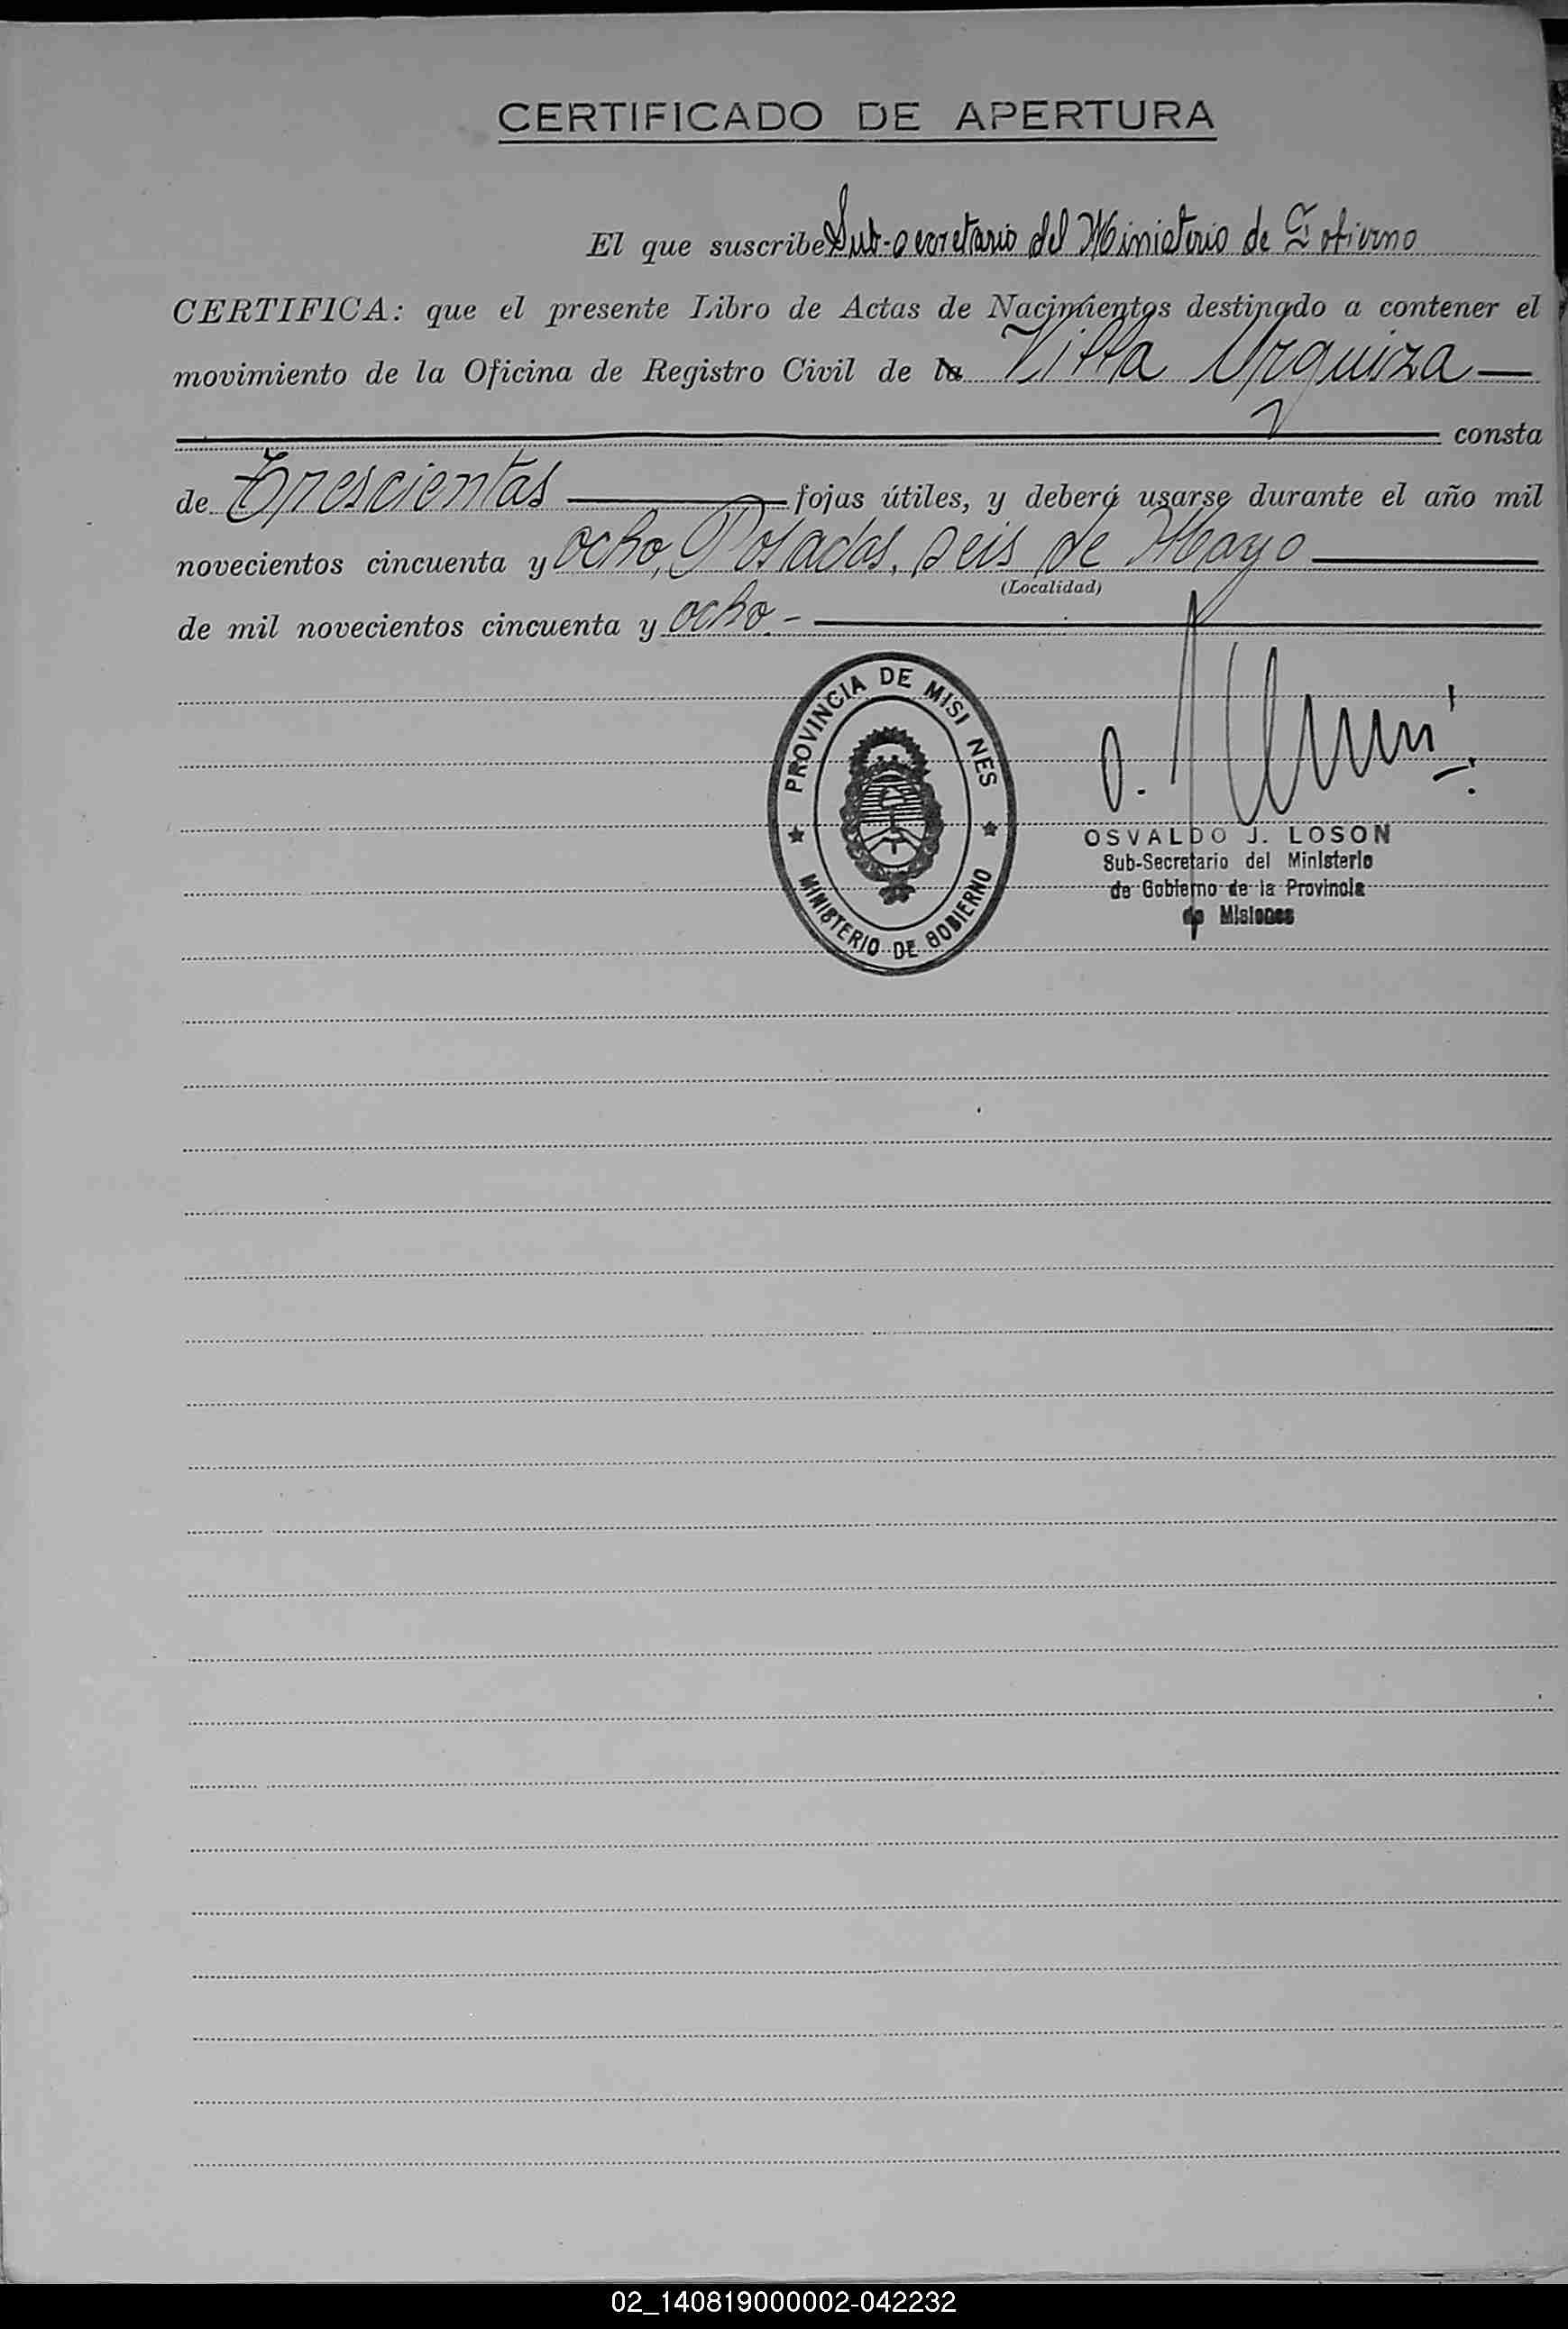 CERTIFICADO DE APERTURA
El que suscribe Sub-secretario del Ministerio de Gobierno
CERTIFICA: que el presente Libro de Actas de Nacimientos destinado a contener el
movimiento de la Oficina de Registro Civil de la Villa Urquiza
consta
de Trescientas fojas útiles, y deberá usarse durante el año mil
novecientos cincuenta y ocho, Posadas, seis de Mayo
(Localidad)
de mil novecientos cincuenta y ocho.-
PROVINCIA DE MISI NES
MINISTERIO DE GOBIERNO
OSVALDO J. LOSON
Sub-Secretario del Ministerio
de Gobierno de la Provincia
de Misiones
02_140819000002-042232